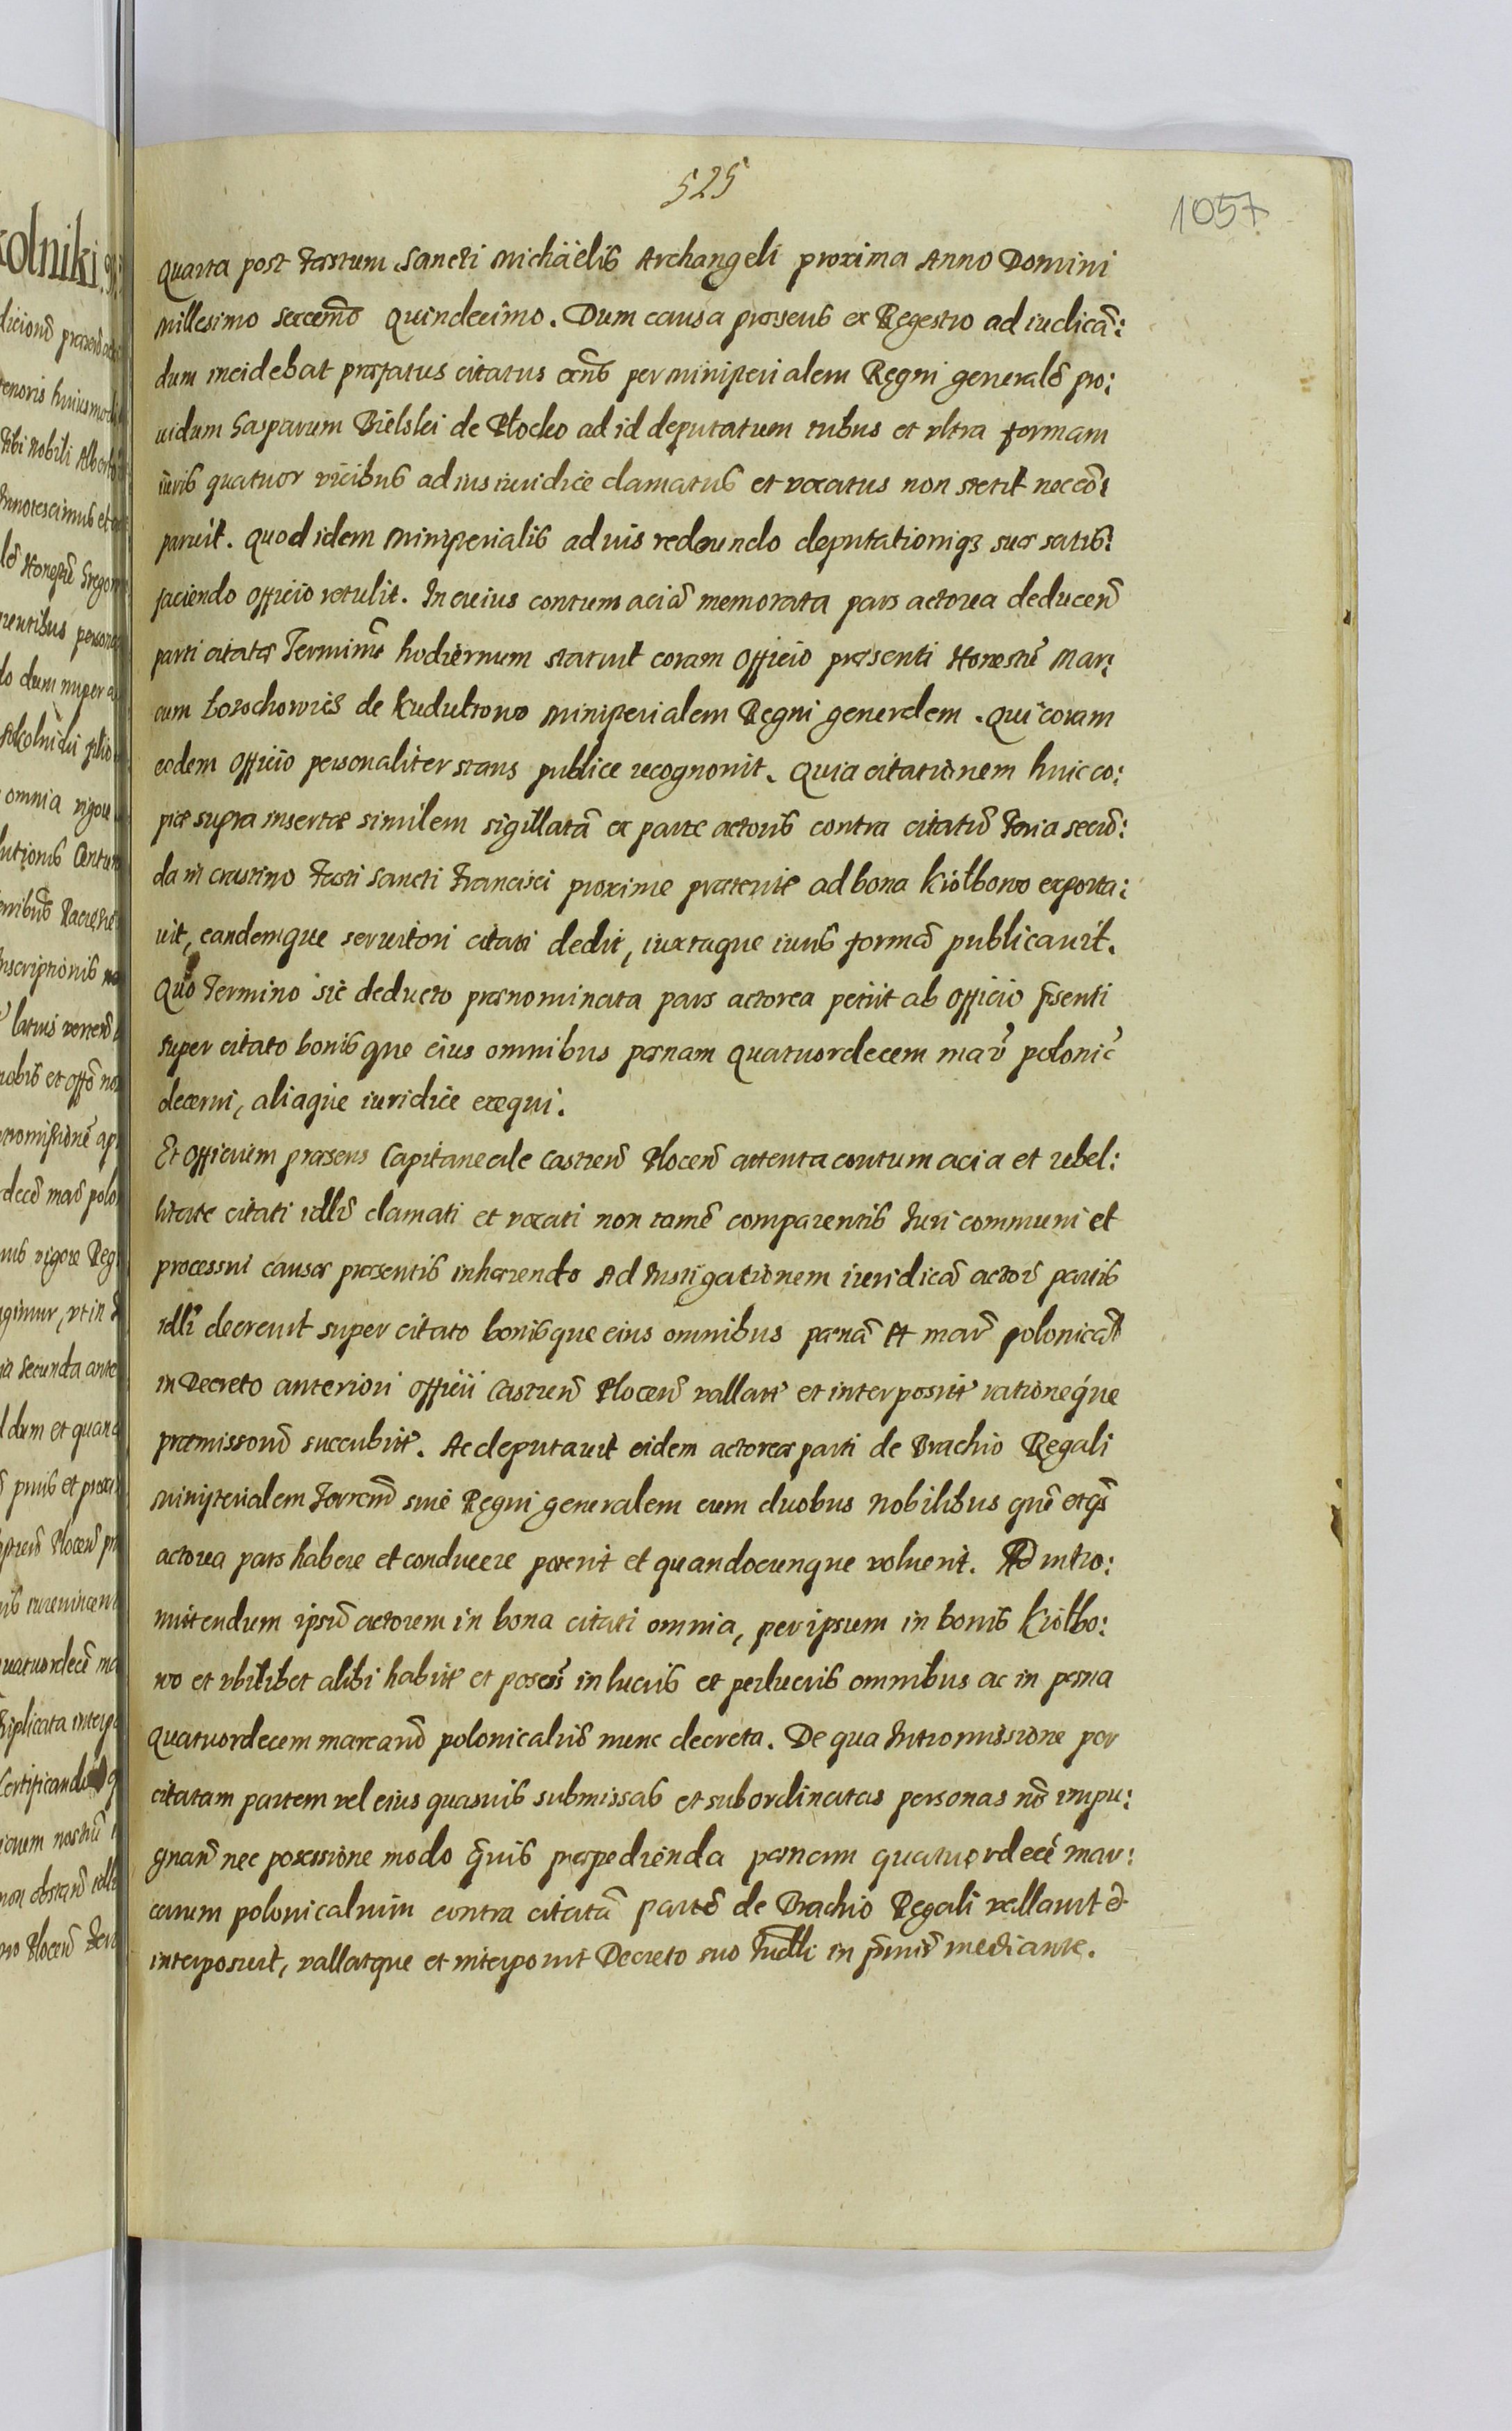 525
1057
Quarta post Festum Sancti Michäelis Archangeli proxima Anno Domini
Millesimo sexcemō Quindecimo. Dum causa præsens ex Regestro ad iudicā:
dum incidebat præfatus citatus exñs per ministerialem Regni generalē pro:
uidum Gasparum Bielski de Płocko ad id deputatum tribus et vltra formam
iuris quatuor vicibus ad ius iuridice clamatus et vocatus non stetit nec cō:
paruit. Quod idem Ministerialis ad nis redeundo deputationiqȝ suæ satis:
faciendo officio retulit. In cuius contumaciā memorata pars actorea deducen̄
parti citatæ Terminū hodiernum statuit coram Officio præsenti Honestū Mar:
cum Łosochowics de Kudultowo Ministerialem Regni generalem. Qui coram
eodem Officio personaliter stans publice recognouit. Quia citationem huic co:
piæ supra insertæ similem sigillatā ex parte actoris contra citatū Feria secū:
da in crastino Festi Sancti Francisci proxime præterite ad bona Kiołbowo exporta:
uit, eandemque seruitori citati dedit, iuxtaque iuris formā publicauit.
Quo Termino sic deducto prænominata pars actorea petiit ab Officio p̄senti
super citato bonisque eius omnibus pænam quatuordecem mar̄ polonic̄
decerni, aliaque iuridice exequi.
Et Officium præsens Capitaneale Castren̄ Plocen̄ attenta contumacia et rebel:
litate citati idl̄r̄ clamati et vocati non tamē comparentis Iuri communi et
processui causæ præsentis inhærendo Ad Instigationem iuridicā actor̄ partis
idl̄r̄ decreuit super citato bonisque eius omnibus pænā 14 mar̄ polonical̄
in Decreto anteriori Officii Castren̄ Plocen̄ vallatē et interpositē rationeque
præmissorū succubuit. Ac deputauit eidem actoreæ parti de Brachio Regali
Ministerialem Terrem̄ siue Regni generalem cum duobus Nobilibus quē et q̄s
actorea pars habere et conducere poterit et quandocunque voluerit. Ad intro:
mittendum ipsū actorem in bona citati omnia, per ipsum in bonis Kiołbo:
wo et vbilibet alibi habitē et posess̄ in lucris et perlucris omnibus ac in pæna
quatuordecem marcarū polonicaliū nunc decreta. De qua Intromissione per
citatam partem vel eius quasuis submissas et subordinatas personas nō impu:
gnan̄ nec posessione modo quis præpedienda pænam quatuordecē mar:
carum polonicalium contra citatā partē de Brachio Regali vallauit et
interposuit, vallatque et interponit Decreto suo Iud̄li in p̄mir̄ mediante.